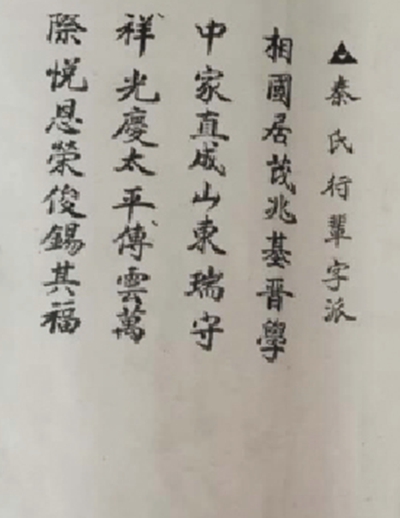 秦氏行輩字派
相國居茂兆基晋學
中家直成山東瑞守
祥光慶太平傳雲萬
際悦恩榮俊錫其福